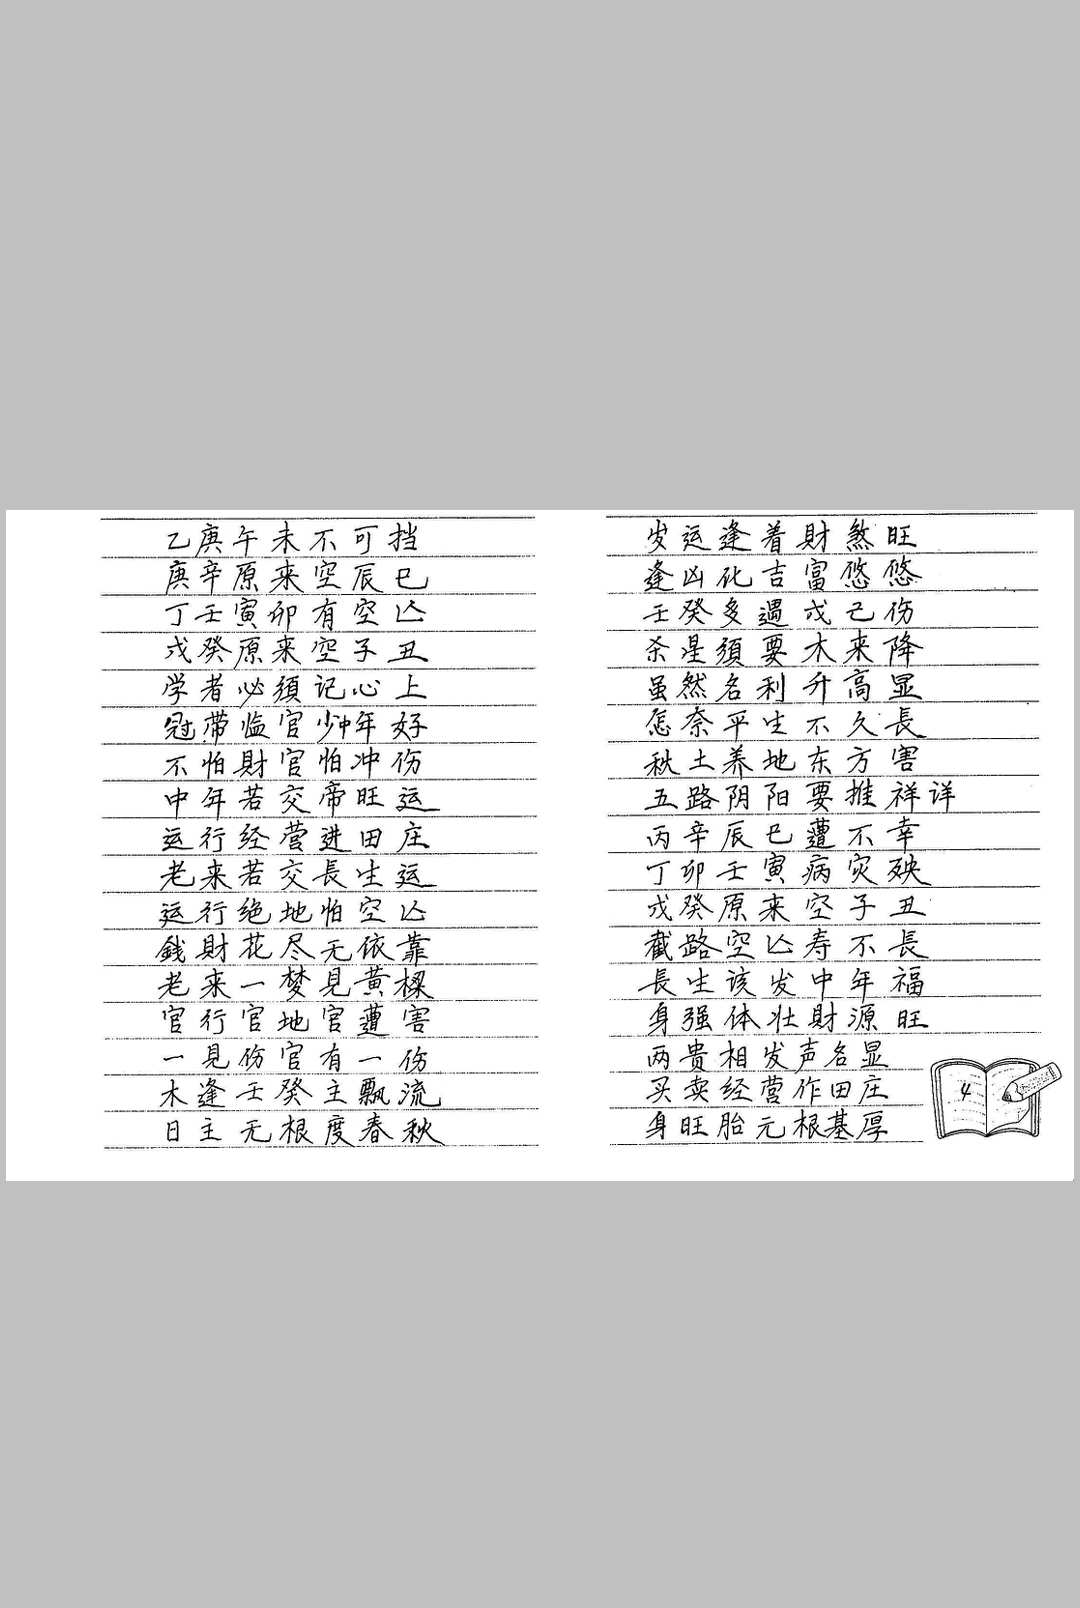 乙庚午未不可挡
庚辛原来空辰巳
丁壬寅卯有空亾
戊癸原来空子丑
学者必須记心上
冠带临官少年好
不怕財官怕冲伤
中年若交帝旺运
运行经营进田庄
老来若交長生运
运行绝地怕空亾
銭財花尽无依靠
老来一梦見黄樑
官行官地官遭害
一見伤官有一伤
木逢壬癸主飘流
日主无根度春秋
岁运逢着財煞旺
逢凶化吉富悠悠
壬癸多遇戊己伤
杀星須要木来降
虽然名利升高显
怎奈平生不久長
秋土养地东方害
五路阴阳要推祥详
丙辛辰巳遭不幸
丁卯壬寅病灾殃
戊癸原来空子丑
截路空亾寿不長
長生该发中年福
身强体壮財源旺
两贵相发声名显
买卖经营作田庄
身旺胎元根基厚
4